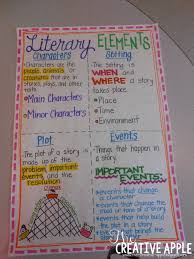 Literary ELEMENTS
Characters
Characters are the
people, animals, or
creatures that are in
stories, plays, and other
texts.
•Main Characters
•Minor Characters
Setting
The setting is
WHEN and
WHERE a story
takes place.
•Place
•Time
•Environment
Plot
The plot of a story is
made up of the
problem, important
events, and the
resolution.
Events
Things that happen in
a story.
IMPORTANT
EVENTS:
•events that change a
character
•events that change the
mood or tone of a story
•events that help build
the plot in a story
The
CREATIVE APPLE